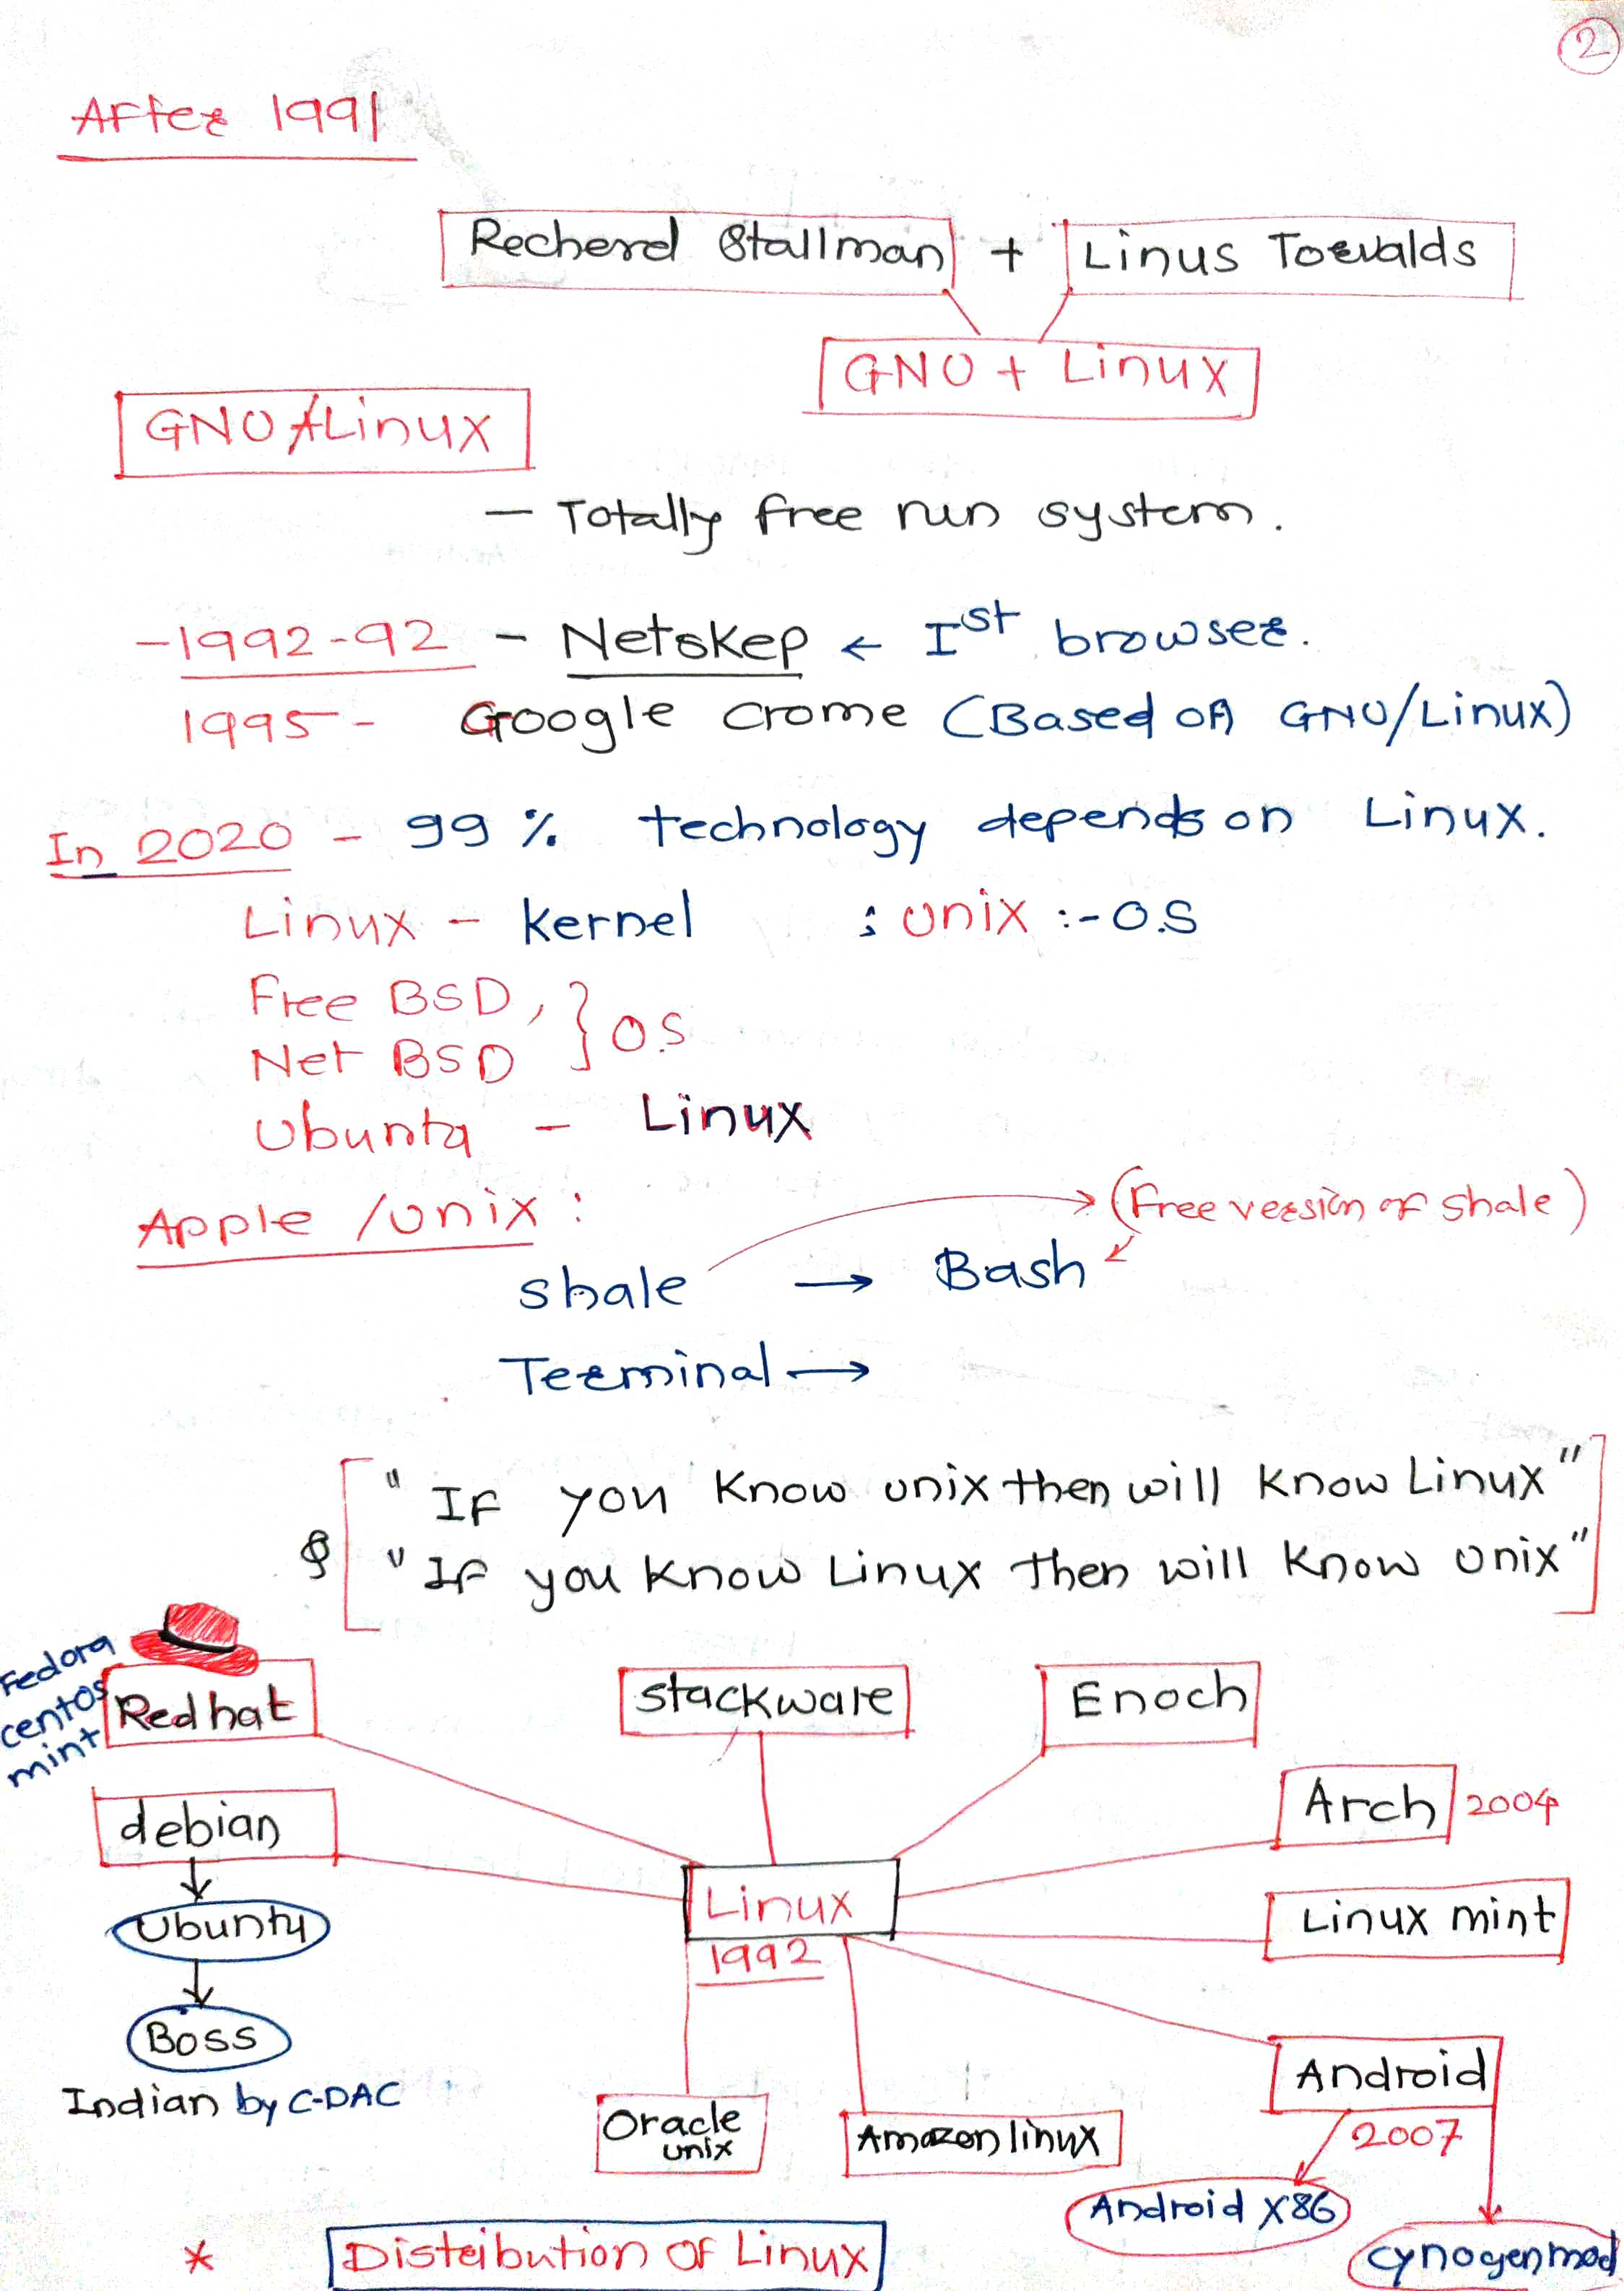 2
After 1991
Recherd Stallman + Linus Torvalds
GNU + Linux
GNU/Linux
- Totally free run system.
-1992-92 - Netskep ← Ist browser.
1995 - Google crome (Based on GNU/Linux)
In 2020 - 99 % technology depends on Linux.
Linux - kernel ; Unix :- O.S
Free BSD, } O.S
Net BSD
Ubuntu - Linux
Apple /Unix :
(Free version of shale)
shale → Bash
Terminal →
" If you know unix then will know Linux"
"If you know Linux then will know unix"
Fedora
centos
mint
Redhat
stackware
Enoch
debian
Arch 2004
Ubuntu
Linux
1992
Linux mint
Boss
Indian by C-DAC
Android
2007
Oracle
unix
Amazon linux
Android X86
cynogenmod
* Distribution of Linux